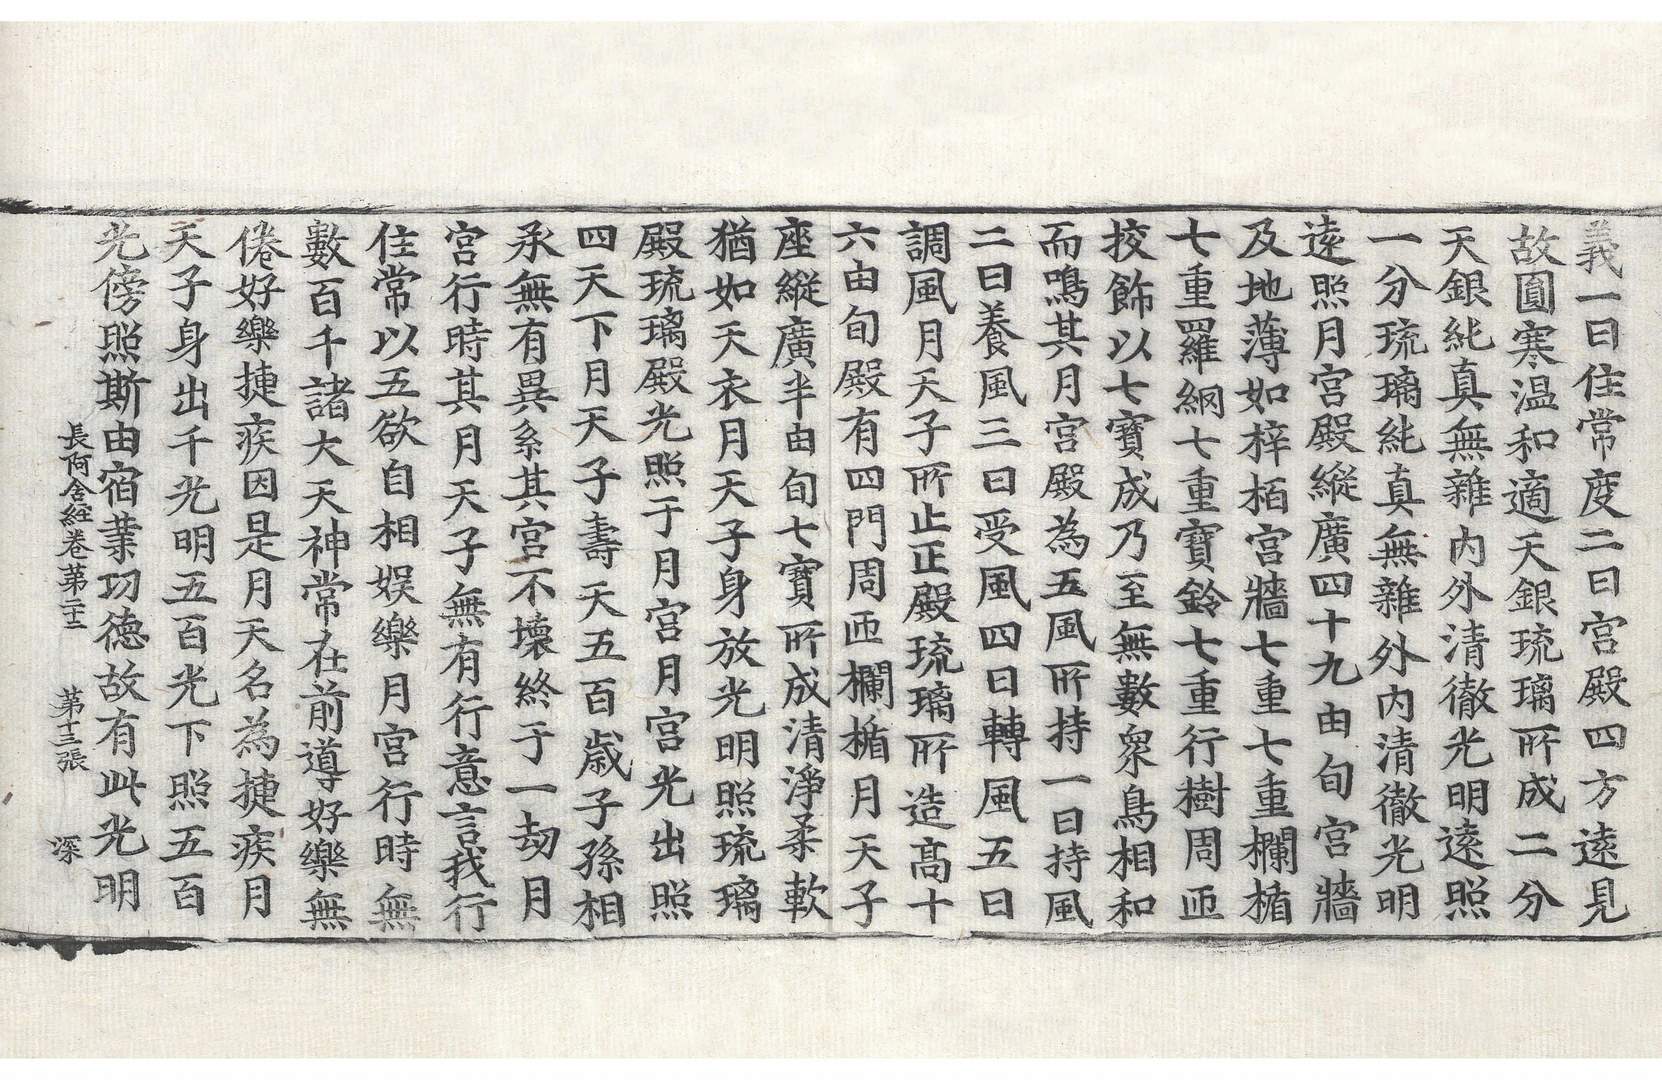 義一曰住常度二曰宮殿四方遠見
故圎寒温和適天銀琉璃所成二分
天銀純真無雜內外清徹光明遠照
一分琉璃純真無雜外內清徹光明
遠照月宮殿縱廣四十九由旬宮牆
及地薄如梓栢宮牆七重七重欄楯
七重羅網七重寶鈴七重行樹周匝
挍飾以七寶成乃至無數衆鳥相和
而鳴其月宮殿為五風所持一曰持風
二曰養風三曰受風四曰轉風五曰
調風月天子所止正殿琉璃所造高十
六由旬殿有四門周匝欄楯月天子
座縱廣半由旬七寶所成清淨柔軟
猶如天衣月天子身放光明照琉璃
殿琉璃殿光照于月宮月宮光出照
四天下月天子壽天五百歲子孫相
承無有異系其宮不壞終于一劫月
宮行時其月天子無有行意言我行
住常以五欲自相娛樂月宮行時無
數百千諸大天神常在前導好樂無
倦好樂捷疾因是月天名為捷疾月
天子身出千光明五百光下照五百
光傍照斯由宿業功德故有此光明
長阿含經卷第二十二 第十三張 深